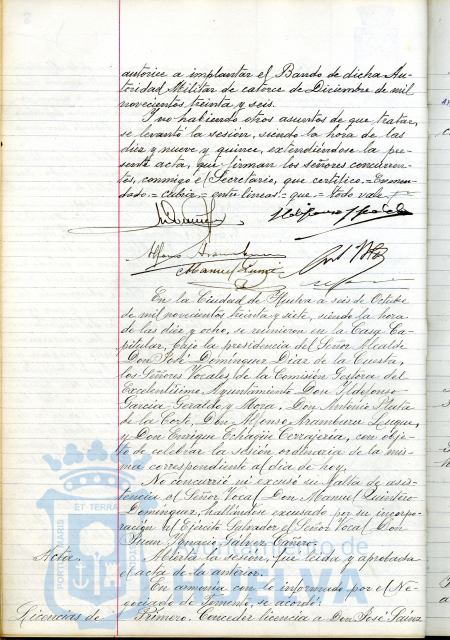 autorice a implantar el Bando de dicha Au-
toridad Militar de catorce de Diciembre de mil
novecientos treinta y seis.
Y no habiendo otros asuntos de que tratar,
se levantó la sesión, siendo la hora de las
diez y nueve y quince, extendiéndose la pre-
sente acta, que firman los señores concurren-
tes, conmigo el Secretario, que certifico.=Enmen-
dado.= cubrir = entre lineas = que = todo vale
Manuel
En la Ciudad de Huelva a seis de Octubre
de mil novecientos treinta y siete, siendo la hora
de las diez y ocho, se reunieron en la Casa Ca-
pitular, bajo la presidencia del Señor Alcalde
Don José Dominguez Diaz de la Cuesta,
los Señores Vocales de la Comisión Gestora del
Excelentísimo Ayuntamiento Don Ildefonso
Garcia Geraldo y Mora, Don Antonio Plata
de la Corte, Don Alfonso Aramburu
y Don Enrique Echagüe Cerrajeria, con obje-
to de celebrar la sesión ordinaria de la mis-
ma correspondiente al dia de hoy.
No concurrió ni excusó su falta de asis-
tencia el Señor Vocal Don Manuel Quintero
Dominguez, hallándose excusado por su incorpo-
ración al Ejército Salvador el Señor Vocal Don
Juan Ignacio Gálvez Cañero.
Acta. Abierta la sesión, fué leida y aprobada
el acta de la anterior.
En armonia con lo informado por el Ne-
gociado de Fomento, se acordó:
Licencias de Primero. Conceder licencia a Don José Sainz
ET TERRA
Ayuntamiento de
HUELVA